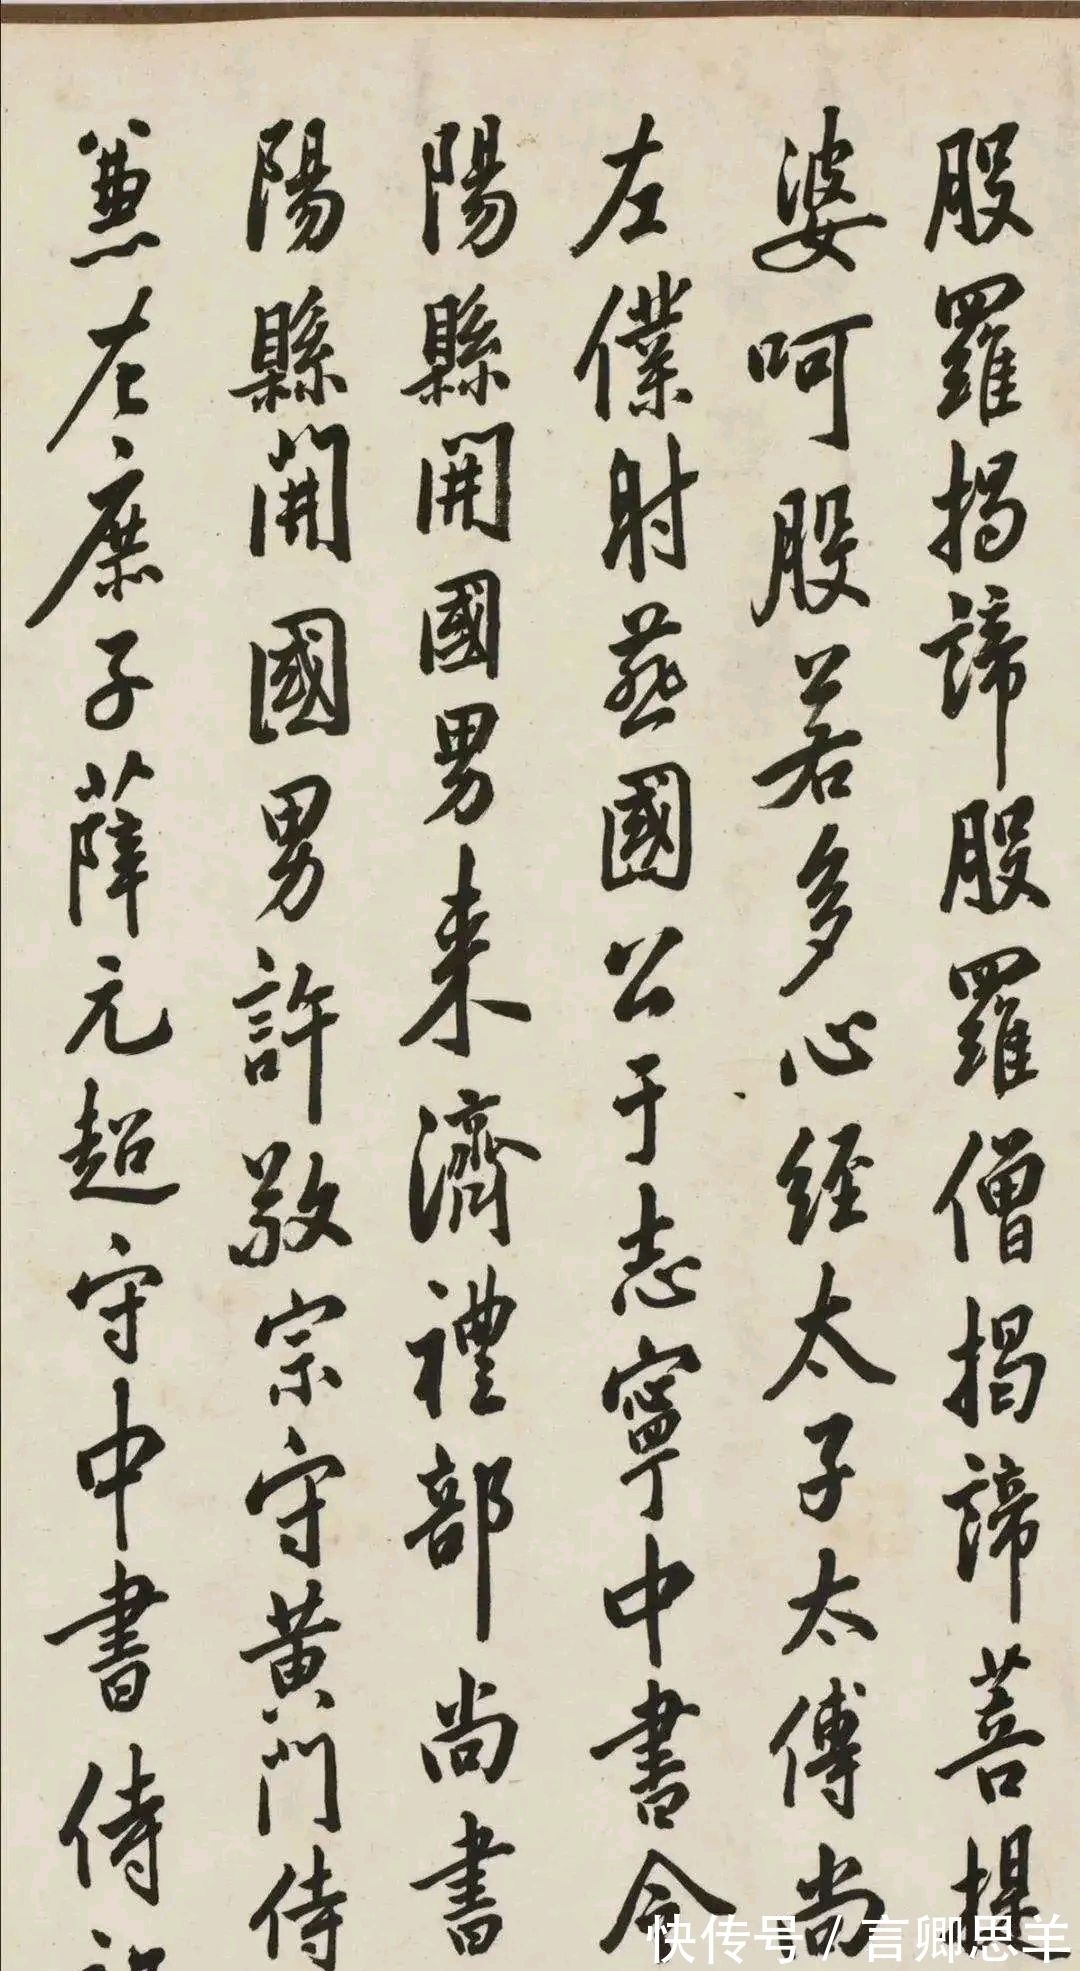 般羅揭諦般羅僧揭諦菩提
婆呵般若多心經太子太傅尚
左僕射燕國公于志寧中書令
陽縣開國男来濟禮部尚書
陽縣開國男許敬宗守黄門侍
兼左庶子薛元超守中書侍
快传号/言卿思羊